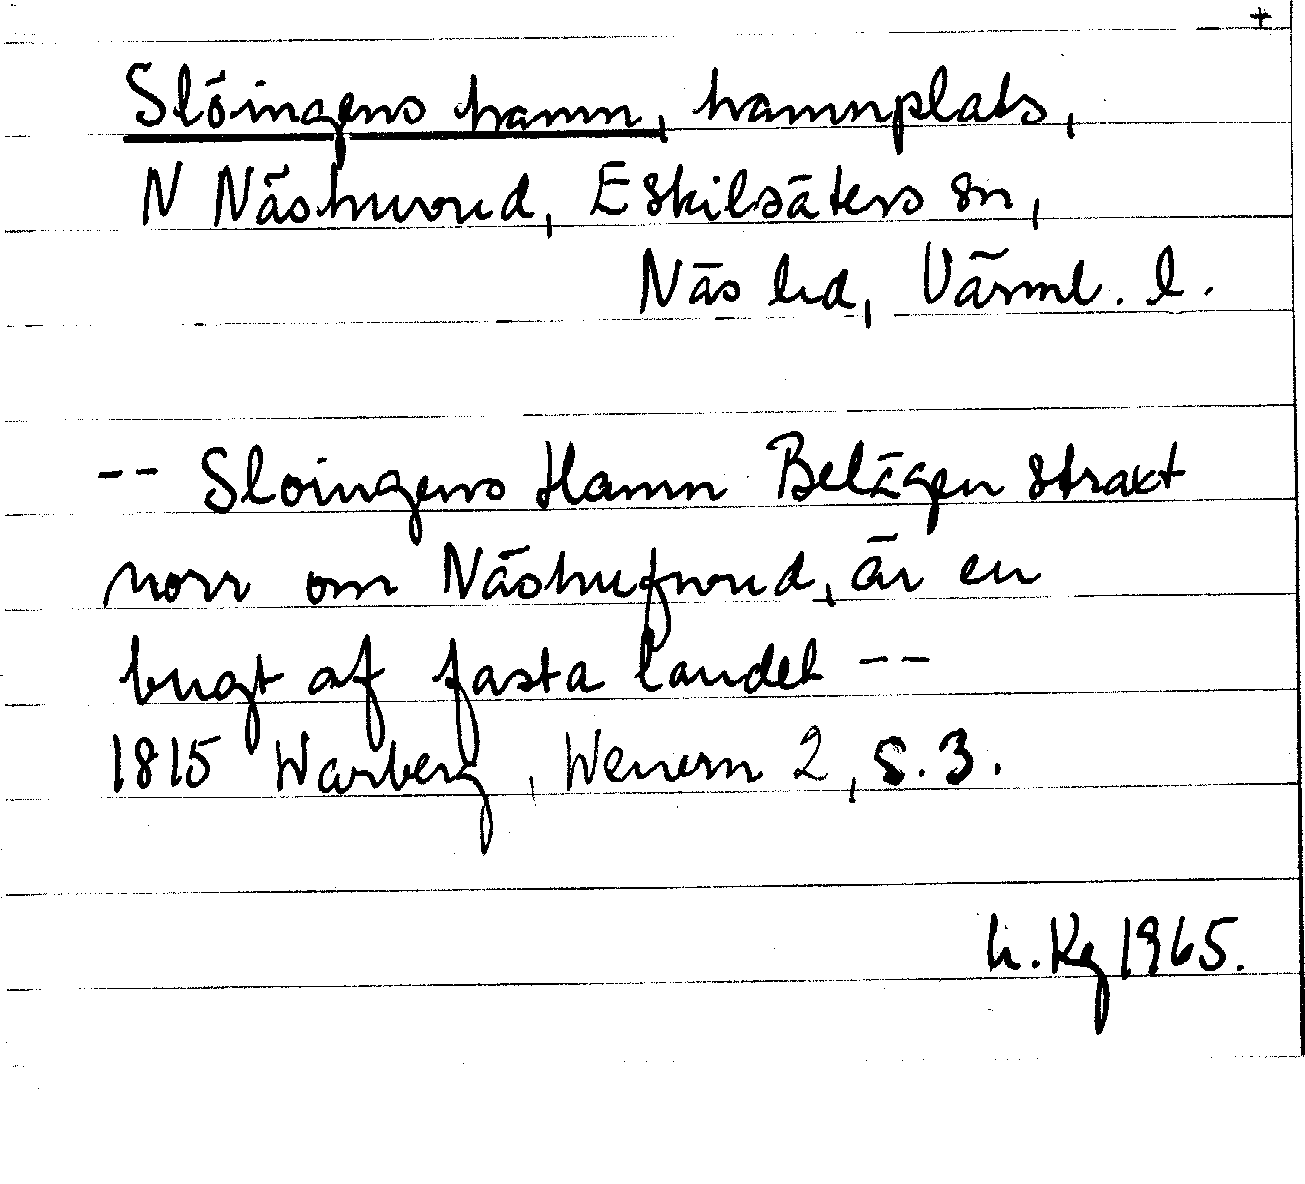 +
Slöingens hamn, hamnplats,
N Näshuvud, Eskilsäters sn,
Näs hd, Värml. l.
-- Sloingens Hamn Belägen strakt
norr om Näshufvud, är en
bugt af fasta landet --
1815 Warberg, Wenern 2, s. 3.
h. Kg 1965.